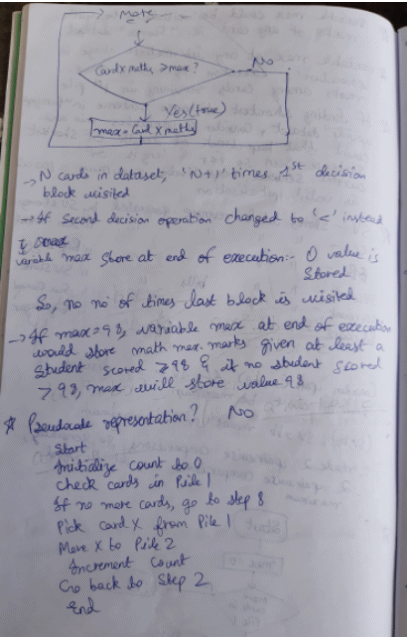 more
Card X maths > max?
No
Yes (true)
max = Card X maths
→ N cards in dataset, 'N+1' times 1st decision
block visited
→ If second decision operation changed to '<' instead
variable max store at end of execution:- 0 value is
stored
So, no no of times last block is visited
→ If max=98, variable max at end of execution
would store math max. marks given at least a
student scored ≥98 & if no student scored
>98, max will store value 98
* Pseudocode representation? No
Start
Initialize count to 0
Check cards in Pile 1
If no more cards, go to step 8
Pick card X from Pile 1
Move X to Pile 2
Increment Count
Go back to Step 2
End